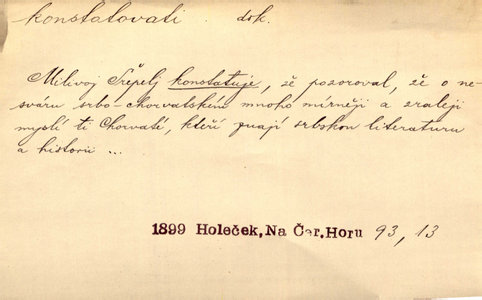 konstatovati dok.
Milivoj Šrepelj konstatuje, že pozoroval, že o ne-
sváru srbo-chorvatském mnoho mírněji a zraleji
myslí ti Chorvaté, kteří znají srbskou literaturu
a historii ...
1899 Holeček, Na Čer. Horu 93, 13